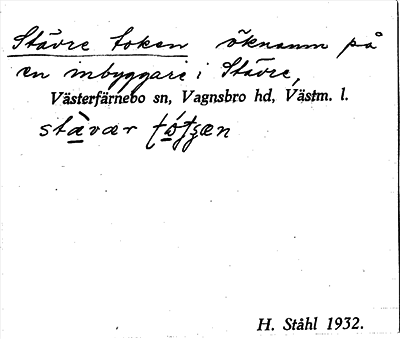 Stävre token öknamn på
en inbyggare i Stävre,
Västerfärnebo sn, Vagnsbro hd, Västm. l.
H. Ståhl 1932.